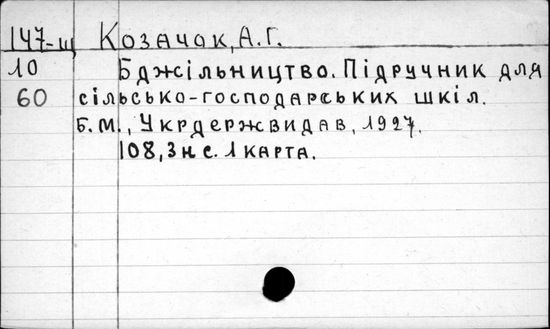 147-щ Козачок, А.Г.
10 Бджільництво. Підручник для
60 сільсько-господарських шкіл.
Б.М., Укрдержвидав, 1927.
108, 3 н с. 1 карта.